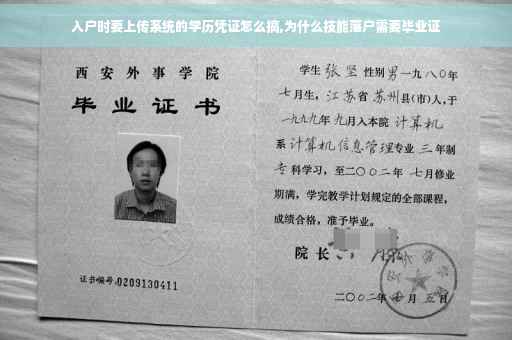 入户时要上传系统的学历凭证怎么搞,为什么技能落户需要毕业证
西安外事学院
毕业证书
证书编号:0209130411
学生 张坚 性别 男 一九八〇年
七月生，江苏省 苏州县(市)人，于
一九九九年 九月入本院 计算机
系 计算机信息管理专业 三 年制
专 科学习，至二〇〇二年 七月修业
期满，学完教学计划规定的全部课程，
成绩合格，准予毕业。
院长
二〇〇二年 七 月 五 日